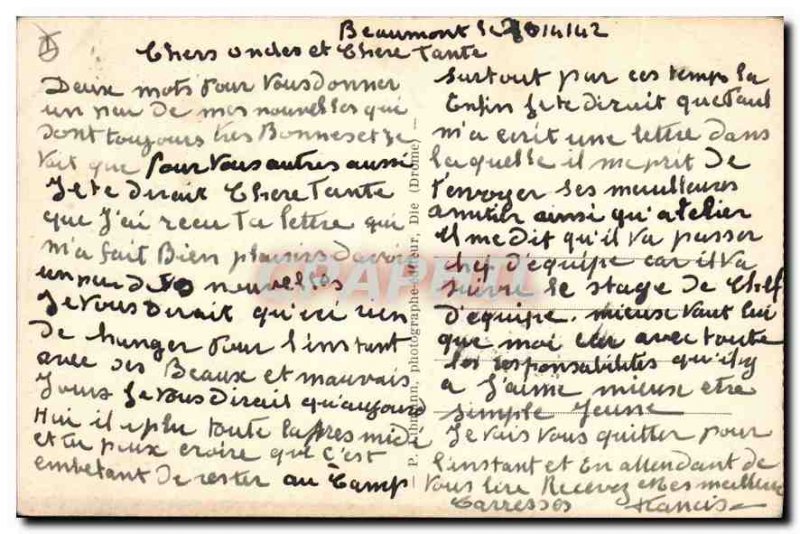 Beaumont le 20/4/42
Chers Oncles et Chere Tante
Deux mots pour vous donner
un peu de mes nouvelles qui
sont toujours tres Bonnes et je
voit que pour vous autres aussi
Je te dirait Chere Tante
que J'ai recu ta lettre qui
m'a fait Bien plaisirs d'avoir
un peu de nouvelles
Je vous dirait qu'ici rien
de changer pour l'instant
avec des Beaux et mauvais
Jours Je vous dirait qu'aujourd
Hui il a plu toute la pres midi
et tu peux croire que c'est
embetant de rester au Camp
P. photographe-éditeur, Die (Drôme)
surtout par ces temps la
Enfin je te dirait que Paul
m'a ecrit une lettre dans
laquelle il me prit de
t'envoyer ses meilleures
amitiés ainsi qu'atelier
Il me dit qu'il va passer
chef d'equipe car il va
suivre le stage de Chef
d'equipe. mieux vaut lui
que moi car avec toute
les responsabilités qu'il y
a J'aime mieux etre
simple Jeune
Je vais vous quitter pour
l'instant et En attendant de
vous lire Recevez mes meilleurs
Carresses Francis
CARTE